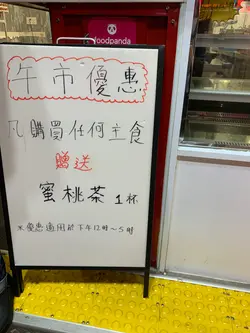 foodpanda
午市優惠
凡購買任何主食
贈送
蜜桃茶 1杯
※優惠適用於下午12時~5時